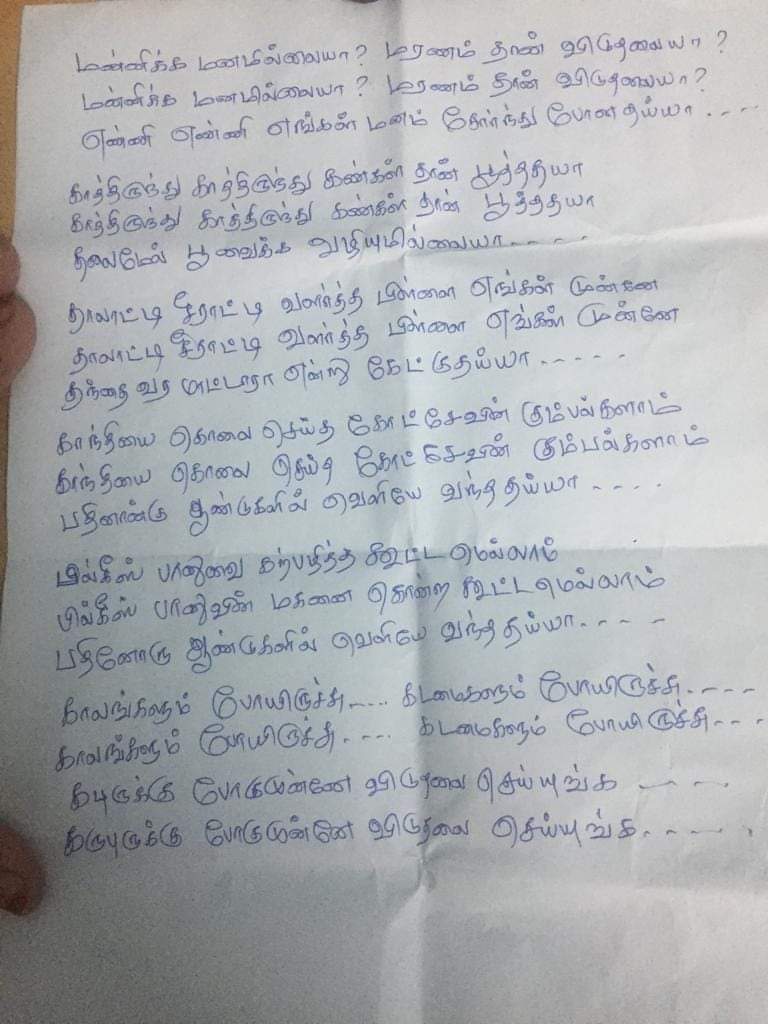 மன்னிக்க மனமில்லையா? மரணம் தான் விடுதலையா?
மன்னிக்க மனமில்லையா? மரணம் தான் விடுதலையா?
எண்ணி எண்ணி எங்கள் மனம் சோர்ந்து போனதய்யா ....
காத்திருந்து காத்திருந்து கண்கள் தான் பூத்ததய்யா
காத்திருந்து காத்திருந்து கண்கள் தான் பூத்ததய்யா
தலைமேல் பூ வைக்க வழியுமில்லையா....
தாலாட்டி சீராட்டி வளர்த்த பிள்ளை எங்கள் முன்னே
தாலாட்டி சீராட்டி வளர்த்த பிள்ளை எங்கள் முன்னே
தந்தை வர மாட்டாரா என்று கேட்குதய்யா .....
காந்தியை கொலை செய்த கோட்சேவின் கும்பல்களாம்
காந்தியை கொலை செய்த கோட்சேவின் கும்பல்களாம்
பதினான்கு ஆண்டுகளில் வெளியே வந்ததய்யா ....
பில்கீஸ் பானுவை கற்பழித்த கூட்டமெல்லாம்
பில்கீஸ் பானுவின் மகனை கொன்ற கூட்டமெல்லாம்
பதினோரு ஆண்டுகளில் வெளியே வந்ததய்யா....
காலங்களும் போயிருச்சு.... கடமைகளும் போயிருச்சு....
காலங்களும் போயிருச்சு.... கடமைகளும் போயிருச்சு...
போகுமுன்னே விடுதலை செய்யுங்க ....
போகுமுன்னே விடுதலை செய்யுங்க.....